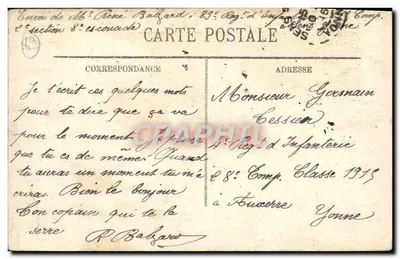 Envoi de Mr René Balzard 89e Reg. d'Inf
2e section 8e escouade
CARTE POSTALE
SENS
YONNE
CORRESPONDANCE
Je t'écrit ces quelques mots
pour te dire que ça va
pour le moment. Je pense
que tu es de même. Quand
tu auras un moment tu m'é
criras. Bien le bonjour
Ton copain qui te la
serre
R Balzard
ADRESSE
Monsieur Germain
Tessier
4e Reg. d'Infanterie
8e Comp. Classe 1915
à Auxerre
Yonne
CPARAMA